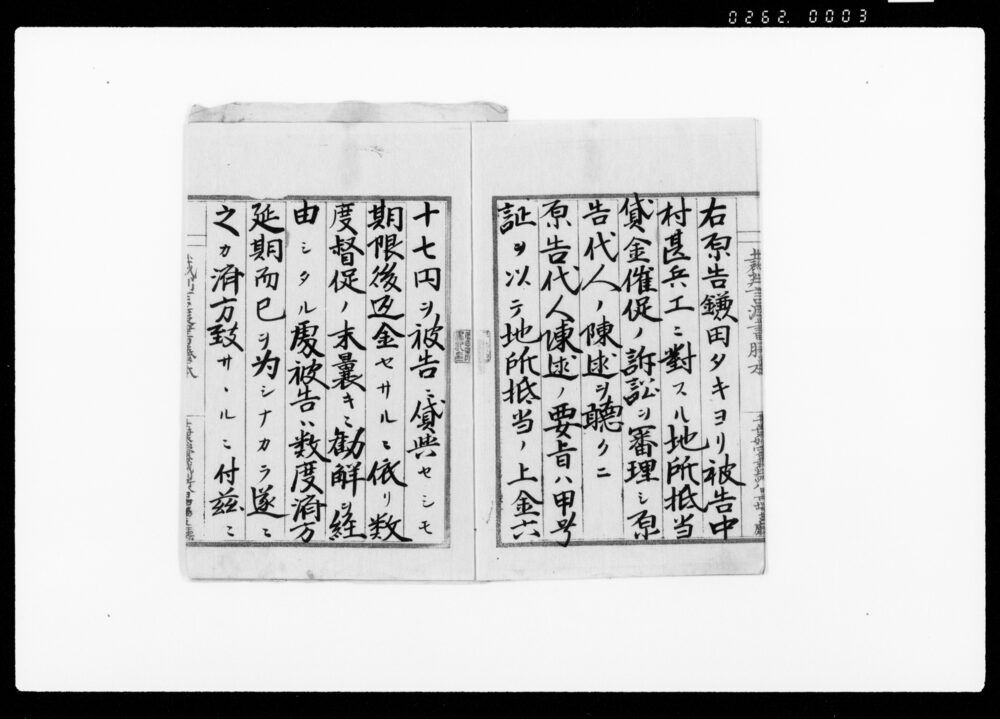 0262.0003
右原告鎌田タキヨリ被告中
村甚兵エニ對スル地所抵当
貸金催促ノ訴訟ヲ審理シ原
告代人ノ陳述ヲ聽クニ
原告代人陳述ノ要旨ハ甲号
証ヲ以テ地所抵当ノ上金六
十七円ヲ被告ニ貸与セシモ
期限後返金セサルニ依リ数
度督促ノ末曩キニ勧解ヲ経
由シタル處被告ハ数度済方
延期而已ヲ為シナカラ遂ニ
之カ済方致サヽルニ付茲ニ